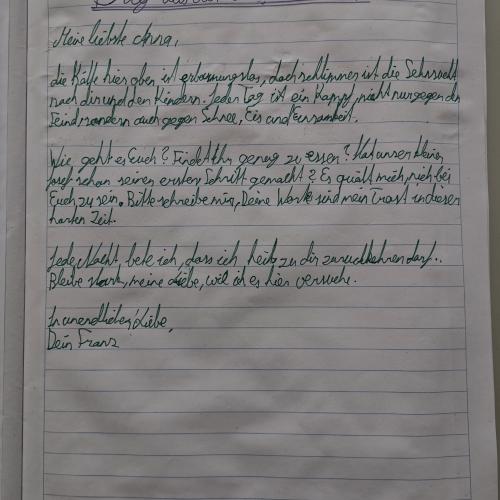 Meine liebste Anna,
die Kälte hier oben ist erbarmungslos, doch schlimmer ist die Sehnsucht
nach dir und den Kindern. Jeder Tag ist ein Kampf, nicht nur gegen den
Feind sondern auch gegen Schnee, Eis und Einsamkeit.
Wie geht es Euch? Findet Ihr genug zu essen? Hat unser kleiner
Josef schon seinen ersten Schritt gemacht? Es quält mich, nich bei
Euch zu sein. Bitte schreibe mir, Deine Worte sind mein Trost in dieser
harten Zeit.
Jede Nacht, bete ich, dass ich heil zu dir zurückkehren darf..
Bleibe stark, meine Liebe, wie ich es hier versuche.
In unendlicher Liebe,
Dein Franz